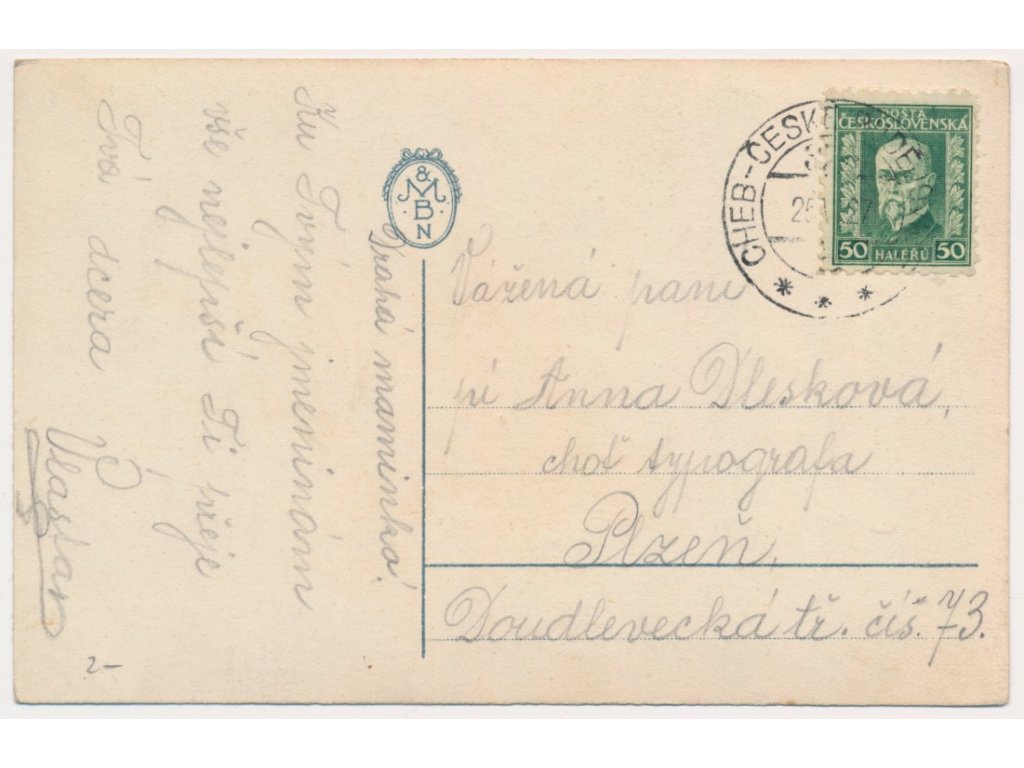 Drahá maminko!
Ku Tvým jmeninám
vše nejlepší Ti přeje
Tvá dcera
Vlasta
2-
& M B N
POŠTA
ČESKOSLOVENSKÁ
50 HALÉŘŮ 50
CHEB-ČESKÉ
Vážená paní
pí Anna Dlesková,
choť typografa
Plzeň,
Doudlevecká tř. čís. 73.